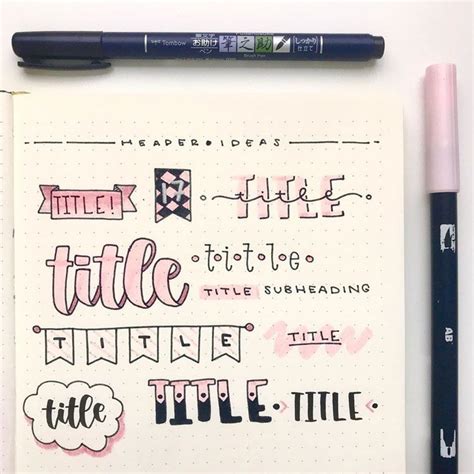 Tombow お助けペン 筆之助 しっかり仕立て
Brush Pen
HEADER • IDEAS
TITLE! 17 TITLE title
title t•i•t•l•e
TITLE SUBHEADING
TITLE TITLE
title TITLE TITLE
AB